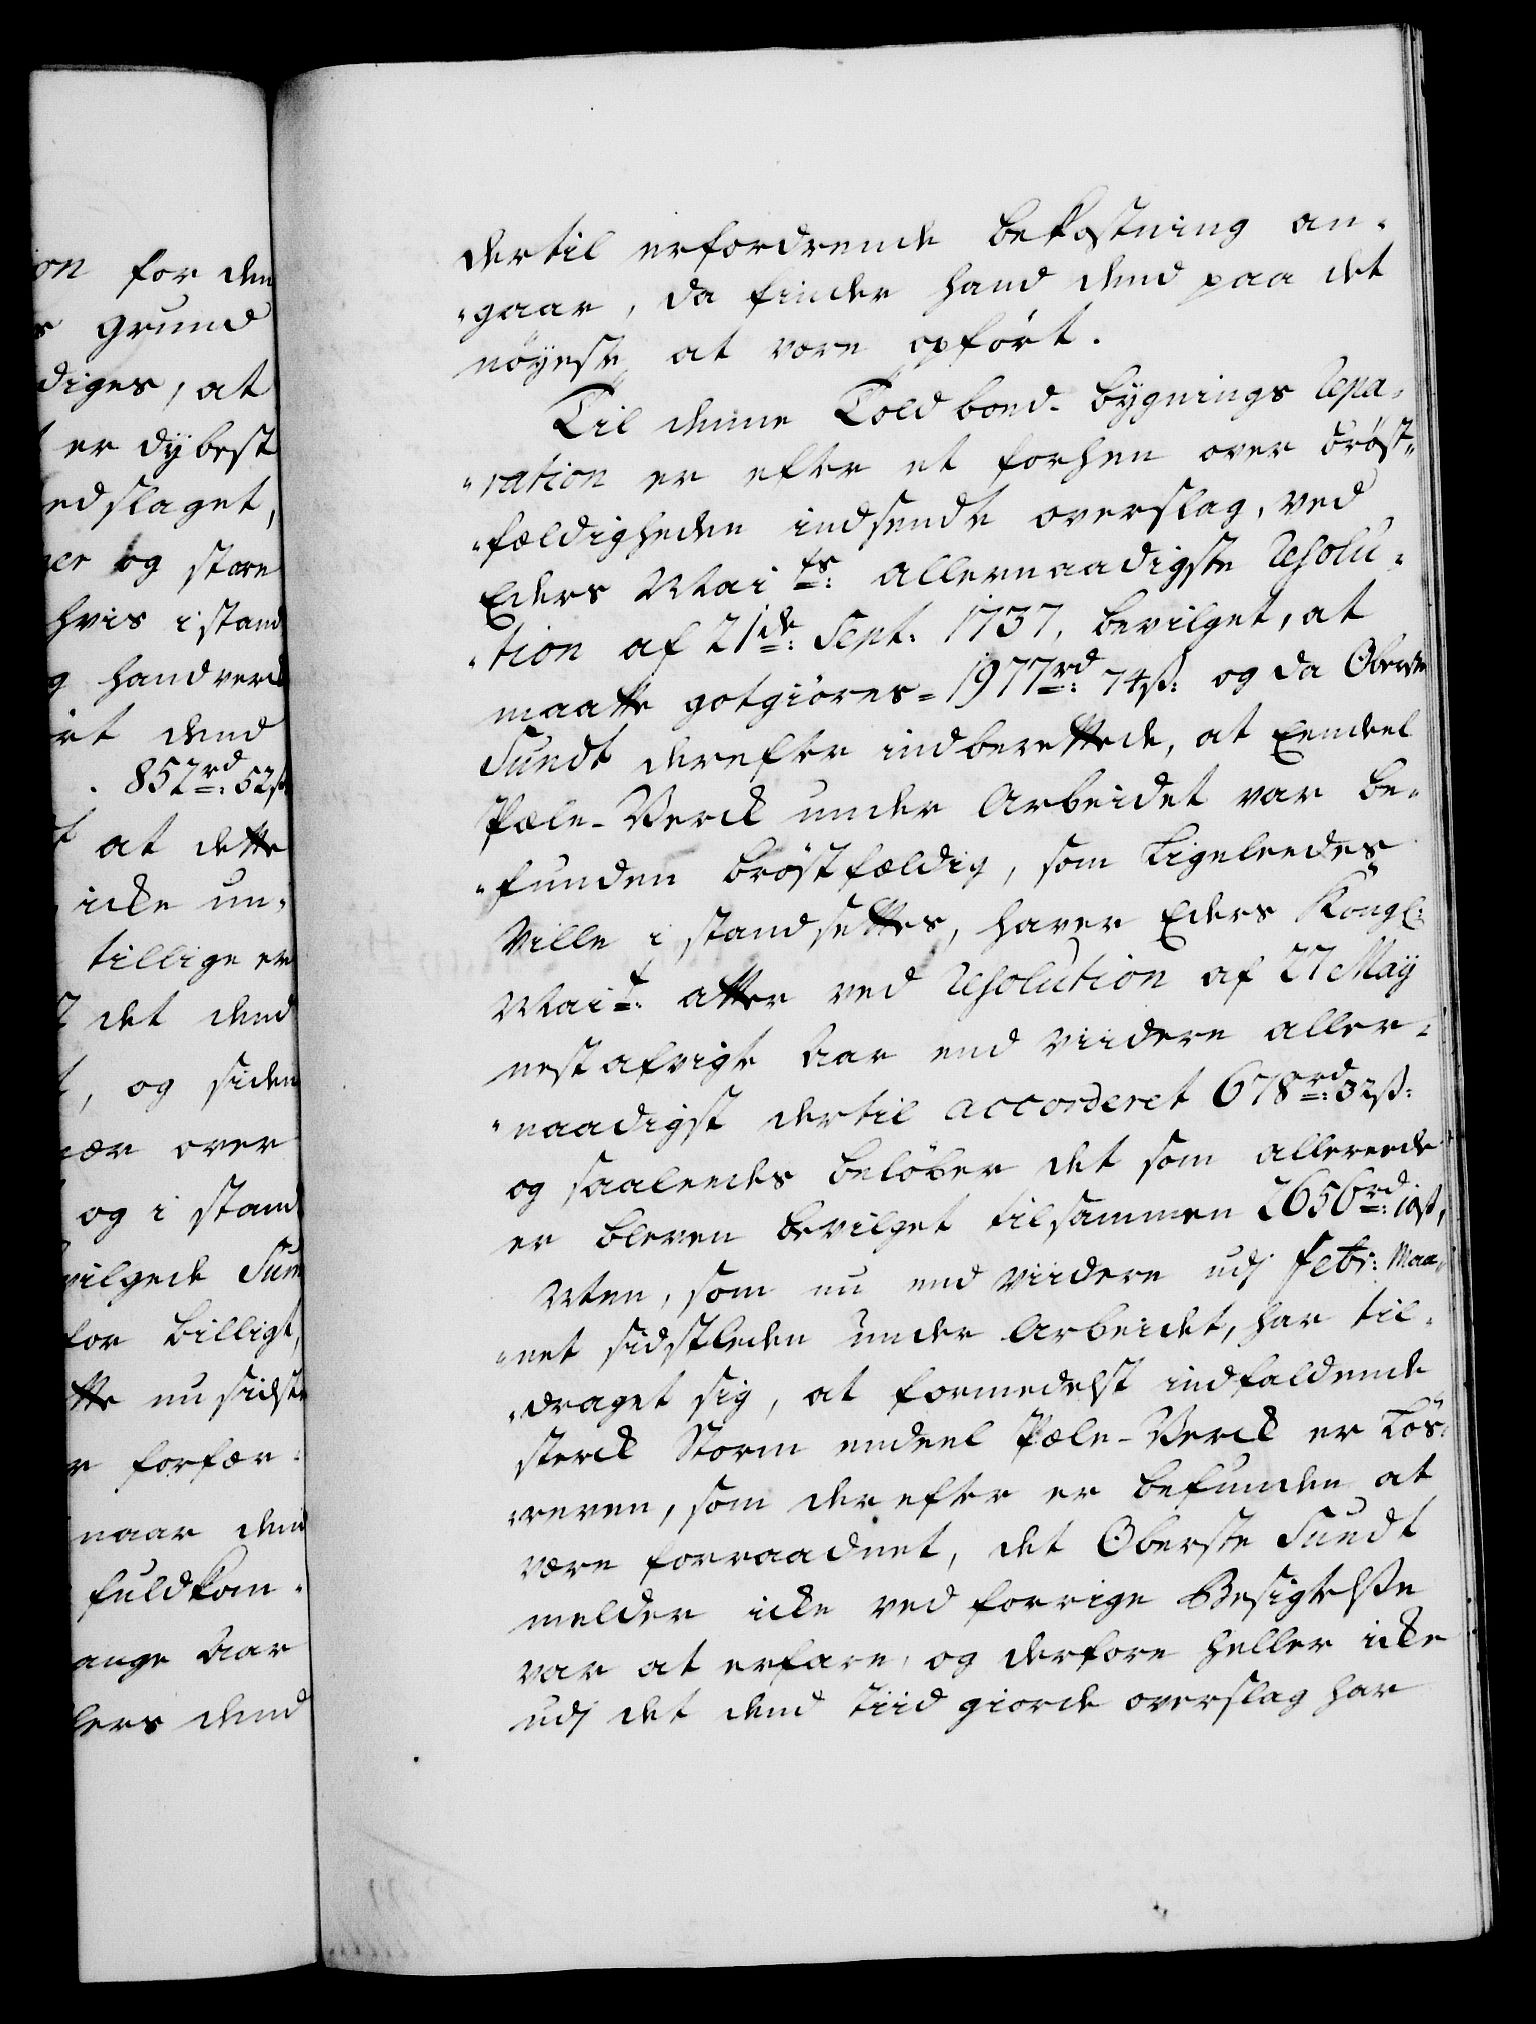 ion for den
grund
diges, at
er dybest
edslaget,
og store
hvis i stand
handverck
dend
852rd: 52ß
at dette
icke un-
tillige er
det dend
, og siden
over
og i stand
vilgede Sum
for billigt,
nu sidste
forfær-
naar dend
fuldkom-
ange Aar
lers dend
dertil erfordrende bekostning an-
"gaar, da finder hand dend paa det
nöyeste at være opfört.
Til denne Toldbod-bygnings Repa-
"ration er efter et forhen over bröst-
"fældigheden indsendt overslag, ved
Eders Maits: allernaadigste Resolu-
"tion af 21de: Sept: 1737, bevilget, at
maatte gotgiöres = 1977rd: 74ß: og da Oberste
Sundt derefter indberettede, at Eendeel
Pæle-Verck under Arbeidet var be-
"funden bröstfældig, som Ligeleedes
Ville i standsettes, haver Eders Kongl:
Mait: atter ved Resolution af 27 May
nestafvigte Aar end Viidere aller-
"naadigst dertil accorderet 678rd: 32ß:
og saaleedes belöber det som allereede
er bleven bevilget tilsammen 2656rd: 10ß,
Men, som nu end Viidere udj Febr: Maa-
"net sidstleden under Arbeidet, har til-
"draget sig, at formedelst indfaldende
sterck Storm endeel Pæle-Verck er Lös-
"reven, som derefter er befunden at
være forraadnet, det Oberste Sundt
melder icke ved forrige Besigtelsse
var at erfare, og derfore heller icke
udj det dend tiid giorde overslag har